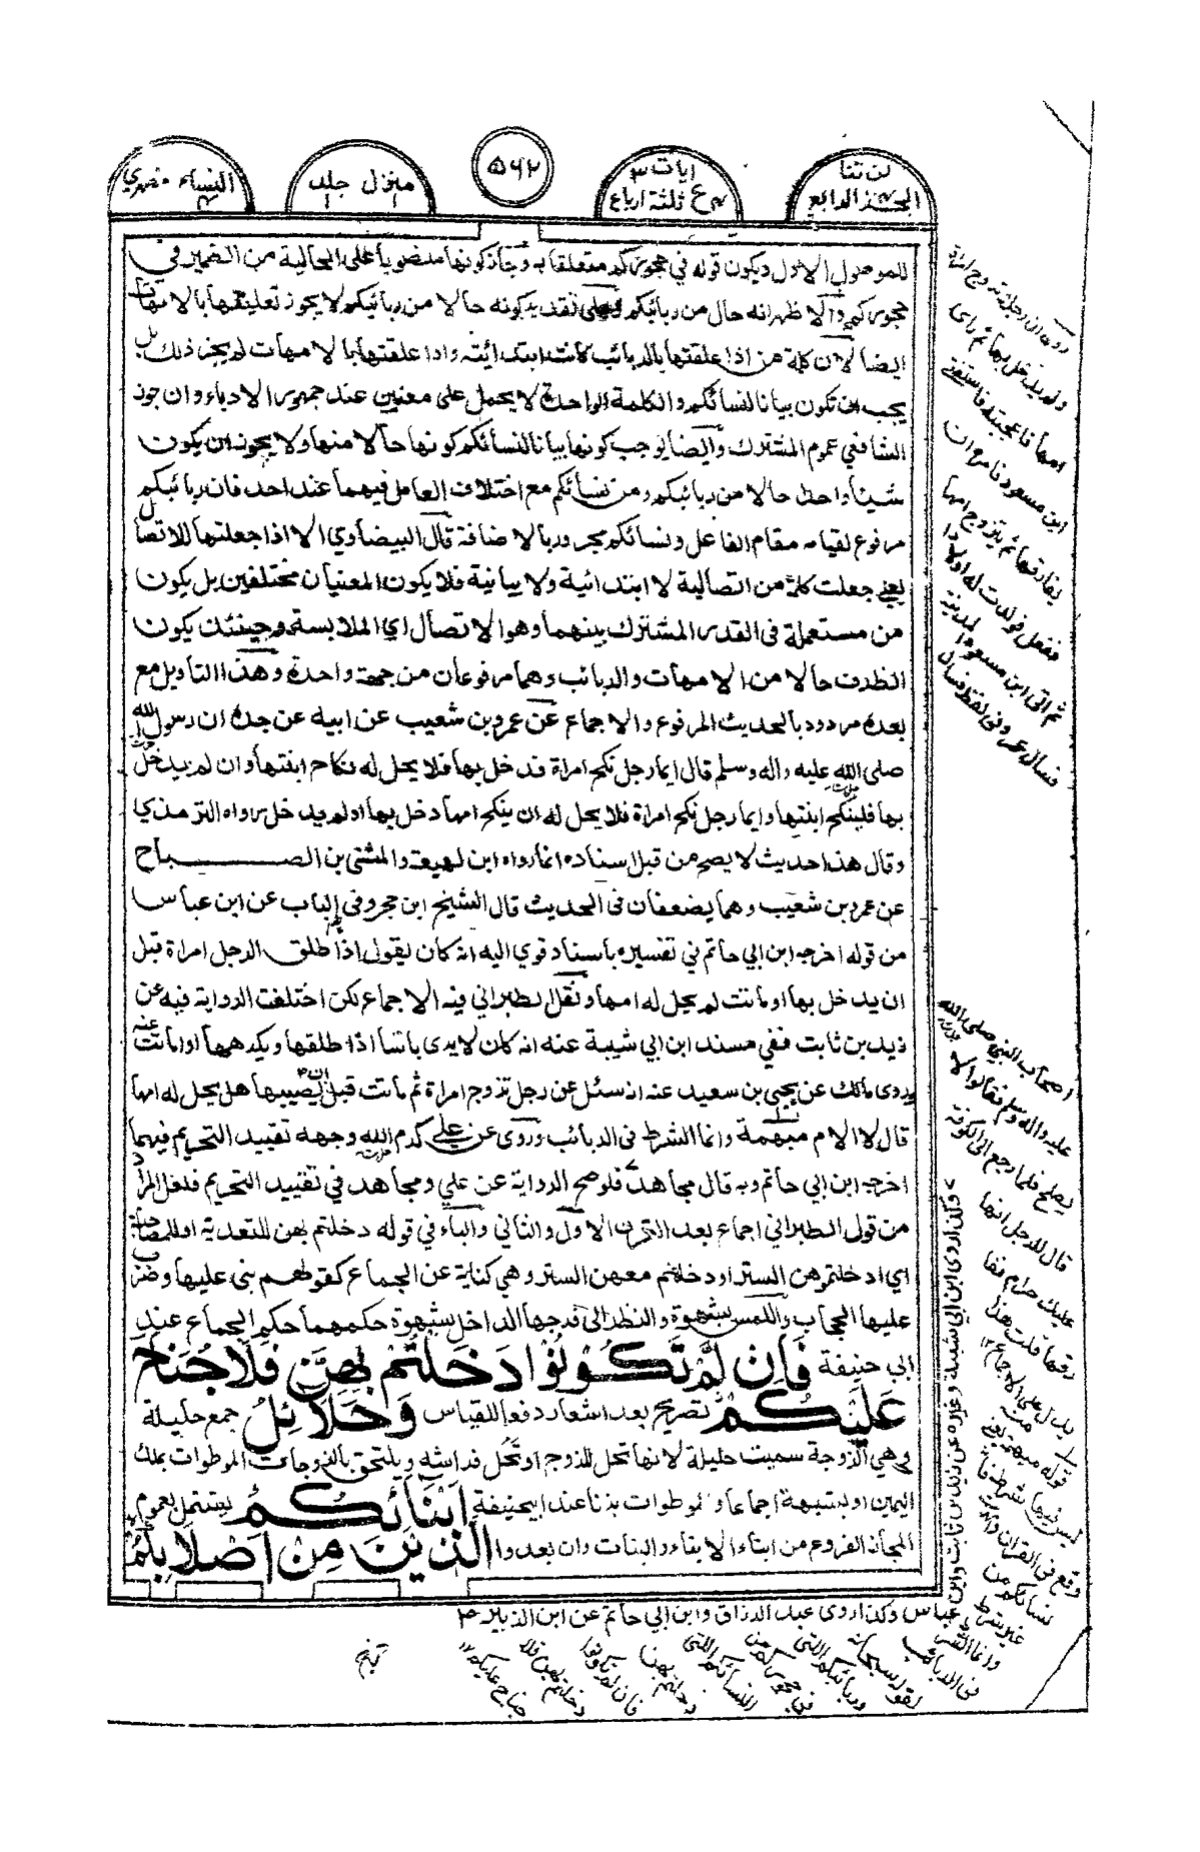 لن تنا
الجزء الرابع
ايات ٣
ع ثلثة ارباع
٥٦٢
منزل جلد
١ ١
النساء مظهري
٤
للموصول الاول ويكون قوله في حجوركم متعلقا به وجاز كونها منصوبا على الحالية من الضمير في
حجوركم والاظهر انه حال من ربائبكم وعلى تقدير كونه حالا من ربائبكم لا يجوز تعليقها بالامهات
ايضا لان كلمة من اذا علقتها بالربائب كانت ابتدائية واذا علقتها بالامهات لم يجز ذلك بل
يجب ان تكون بيانا لنسائكم والكلمة الواحدة لا يحمل على معنيين عند جمهور الادباء وان جوز
الشافعي عموم المشترك وايضا يوجب كونها بيانا لنسائكم كونها حالا منها ولا يجوز ان يكون
شيئا واحدا حالا من ربائبكم ومن نسائكم مع اختلاف العامل فيهما عند احد فان ربائبكم
مرفوع لقيامه مقام الفاعل ونسائكم مجرور بالاضافة قال البيضاوي الا اذا جعلتها للاتصال
يعني جعلت كلمة من اتصالية لا ابتدائية ولا بيانية فلا يكون المعنيان مختلفين بل يكون
من مستعملة في القدر المشترك بينهما وهو الاتصال اي الملابسة وحينئذ يكون
الظرف حالا من الامهات والربائب وهما مرفوعان من جهة واحدة وهذا التاويل مع
بعده مردود بالحديث المرفوع والاجماع عن عمرو بن شعيب عن ابيه عن جده ان رسول الله
صلى الله عليه واله وسلم قال ايما رجل نكح امراة فدخل بها فلا يحل له نكاح ابنتها وان لم يدخل
بها فلينكح ابنتها وايما رجل نكح امراة فلا يحل له ان ينكح امها دخل بها او لم يدخل رواه الترمذي
وقال هذا حديث لا يصح من قبل اسناده انما رواه ابن لهيعة والمثنى بن الصباح
عن عمرو بن شعيب وهما يضعفان في الحديث قال الشيخ ابن حجر وفي الباب عن ابن عباس
من قوله اخرجه ابن ابي حاتم في تفسيره باسناد قوي اليه انه كان يقول اذا طلق الرجل امراة قبل
ان يدخل بها او ماتت لم يحل له امها ونقل الطبراني فيه الاجماع لكن اختلفت الرواية فيه عن
زيد بن ثابت ففي مسند ابن ابي شيبة عنه انه كان لا يرى باسا اذا طلقها ويكرهها اذا ماتت عنه
وروى مالك عن يحيى بن سعيد عنه انه سئل عن رجل تزوج امراة ثم ماتت قبل ان يصيبها هل يحل له امها
قال لا الام مبهمة وانما الشرط في الربائب وروى عن علي كرم الله وجهه تقييد التحريم فيهما
اخرجه ابن ابي حاتم وبه قال مجاهد فلو صح الرواية عن علي ومجاهد في تقييد التحريم فلعل المراد
من قول الطبراني اجماع بعد القرن الاول والثاني والباء في قوله دخلتم بهن للتعدية او للمصاحبة
اي ادخلتموهن الستر او دخلتم معهن الستر وهي كناية عن الجماع كقولهم بنى عليها وضرب
عليها الحجاب واللمس بشهوة والنظر الى فرجها الداخل بشهوة حكمهما حكم الجماع عند
ابي حنيفة فَاِنْ لَّمْ تَكُوْنُوْا دَخَلْتُمْ بِهِنَّ فَلَا جُنَاحَ
عَلَيْكُمْ تصريح بعد اشعار دفعا للقياس وَحَلَائِلُ جمع حليلة
وهي الزوجة سميت حليلة لانها تحل للزوج او تحل فراشه ويلتحق بالزوجات الموطوات بملك
اليمين او بشبهة اجماعا وموطوات بزنا عند ابيحنيفة اَبْنَائِكُمُ يشتمل بعموم
المجاز الفروع من ابناء الابناء والبنات وان بعدوا الَّذِيْنَ مِنْ اَصْلَابِكُمْ
روى ان رجلا تزوج امراة
ولم يدخل بها ثم راى
امها فاعجبته فاستفتى
ابن مسعود فامره ان
يفارقها ثم يتزوج امها
ففعل فولدت له اولادا
ثم اتى ابن مسعود المدينة
فسال عمر وفي لفظ فسال
اصحاب النبي صلى الله
عليه واله وسلم فقالوا لا
يصلح فلما رجع الى الكوفة
قال للرجل انها
عليك حرام ففا
رقها قلت هذا
يدل على الاجماع ١٢
قوله مبهمة يعني
ليس فيها شرط فما
وقع في القران
نسائكم من
غير شرط
وانما الشرط
في الربائب
لقوله سبحانه
وربائبكم اللتي
في حجوركم من
نسائكم اللتي
دخلتم بهن
فان لم تكونوا
دخلتم بهن فلا
جناح عليكم ١٢
وكذا روى ابن ابي شيبة وغيره عن زيد بن ثابت وابن
عباس وكذا روى عبد الرزاق وابن ابي حاتم عن ابن الزبير ١٢